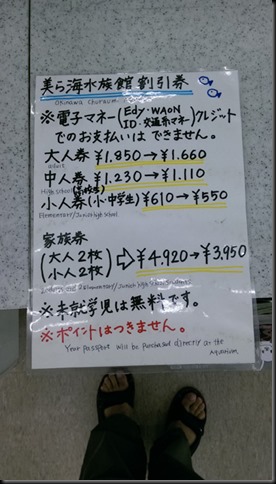 美ら海水族館 割引券
Okinawa Churaumi
※電子マネー(Edy・WAON
ID・交通系マネー)クレジット
でのお支払いは できません。
大人券 ¥1.850→¥1.660
adult
中人券 ¥1.230→¥1.110
High school(高校生)
小人券(小・中学生)¥610→¥550
Elementary/Junior high School
家族券
(大人2枚
小人2枚) ⇨ ¥4.920→¥3.950
Elementary/Junior high School students
※未就学児は無料です。
※ポイントはつきません。
Your passport will be purchased directly at the
Aquarium